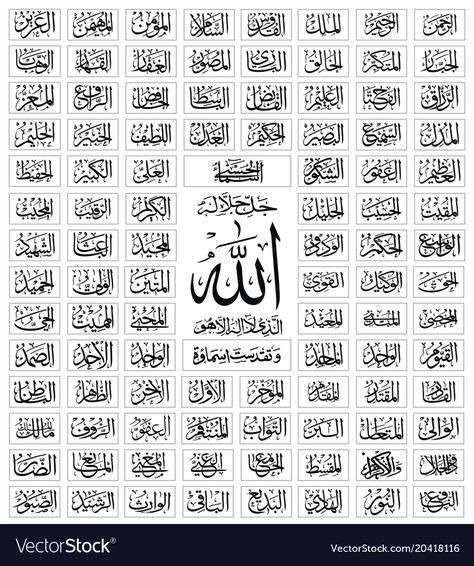 الرحمن الرحيم الملك القدوس السلام المؤمن المهيمن العزيز
الجبار المتكبر الخالق البارئ المصور الغفار القهار الوهاب
الرزاق الفتاح العليم القابض الباسط الخافض الرافع المعز
المذل السميع البصير الحكيم العدل اللطيف الخبير الحليم
العظيم الغفور الشكور العلي الكبير الحفيظ
المقيت الحسيب الجليل جل جلاله الكريم الرقيب المجيب
الواسع الحكيم الودود المجيد الباعث الشهيد
الحق الوكيل القوي الله المتين الولي الحميد
المحصي المبدئ المعيد الذي لا اله الا هو المحيي المميت الحي
القيوم الواجد الماجد وتقدست اسماؤه الواحد الاحد الصمد
القادر المقتدر المقدم المؤخر الاول الاخر الظاهر الباطن
الوالي المتعال البر التواب المنتقم العفو الرؤف مالك الملك
ذوالجلال والاكرام المقسط الجامع الغني المغني المانع الضار
النافع النور الهادي البديع الباقي الوارث الرشيد الصبور
VectorStock® VectorStock.com/20418116